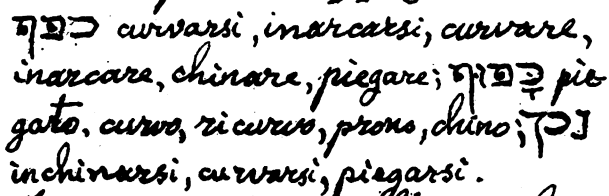 כפף curvarsi, inarcarsi, curvare,
inarcare, chinare, piegare; כָּפוּף pie-
gato, curvo, ricurvo, prono, chino;
inchinarsi, curvarsi, piegarsi.